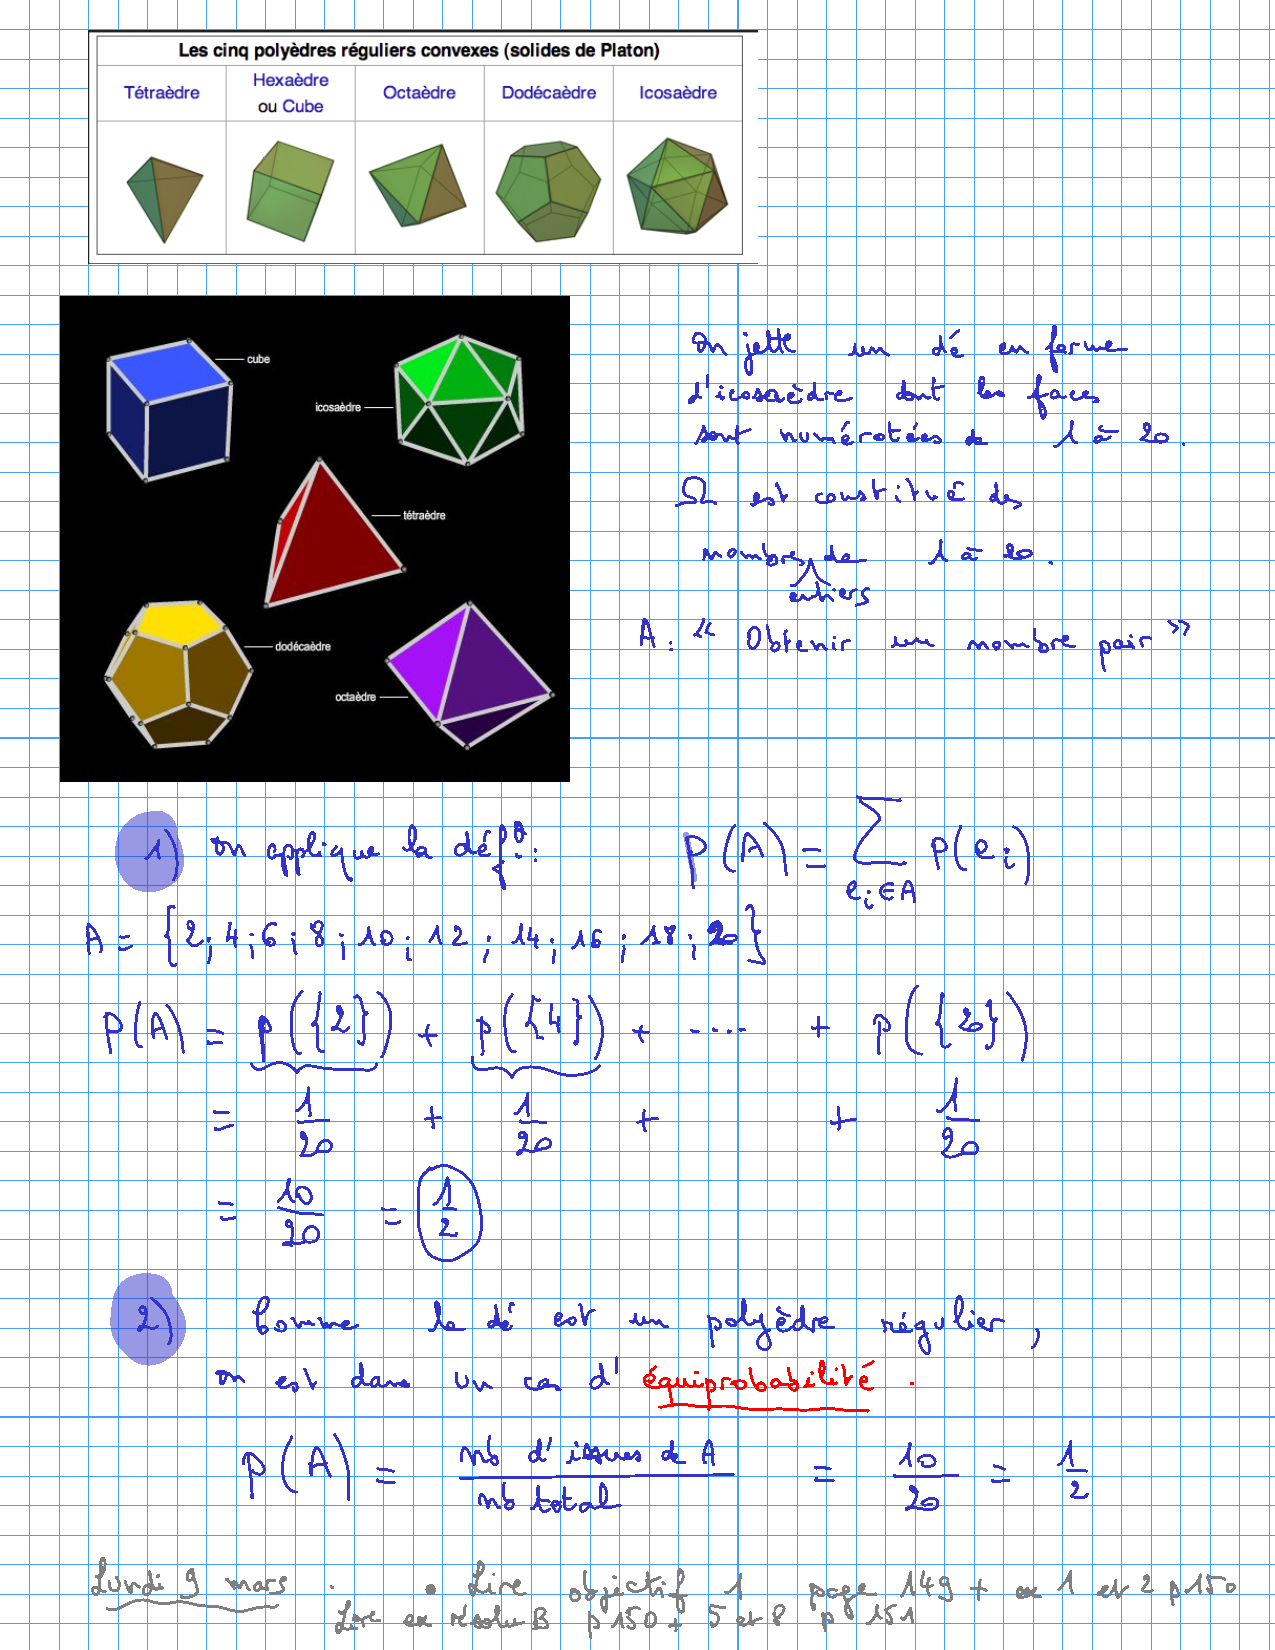 Les cinq polyèdres réguliers convexes (solides de Platon)
Tétraèdre
Hexaèdre
ou Cube
Octaèdre
Dodécaèdre
Icosaèdre
cube
icosaèdre
tétraèdre
dodécaèdre
octaèdre
On jette un dé en forme
d'icosaèdre dont les faces
sont numérotées de 1 à 20.
Ω est constitué des
nombres entiers de 1 à 20.
A : « Obtenir un nombre pair »
1) on applique la déf° : P(A) = ∑ p(e_i)
e_i ∈ A
A = {2; 4; 6; 8; 10; 12; 14; 16; 18; 20}
P(A) = p({2}) + p({4}) + .... + p({20})
= 1/20 + 1/20 + + 1/20
= 10/20 = 1/2
2) Comme le dé est un polyèdre régulier,
on est dans un cas d'équiprobabilité.
P(A) = nb d'issues de A / nb total = 10/20 = 1/2
Lundi 9 mars . • Lire objectif 1 page 149 + ex 1 et 2 p150
Lire ex résolu B p150 + 5 et 8 p 151